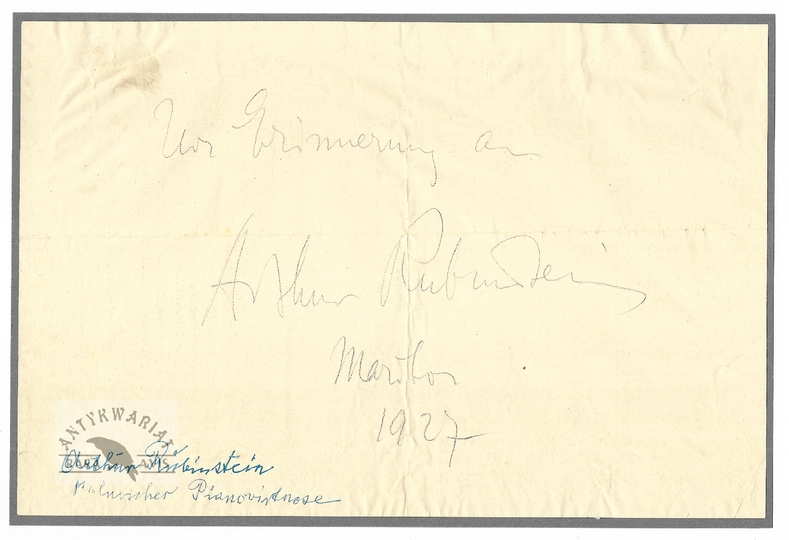 Zur Erinnerung an
Arthur Rubinstein
Maribor
1927
ANTYKWARIAT
Arthur Rubinstein
Polnischer Pianovirtuose